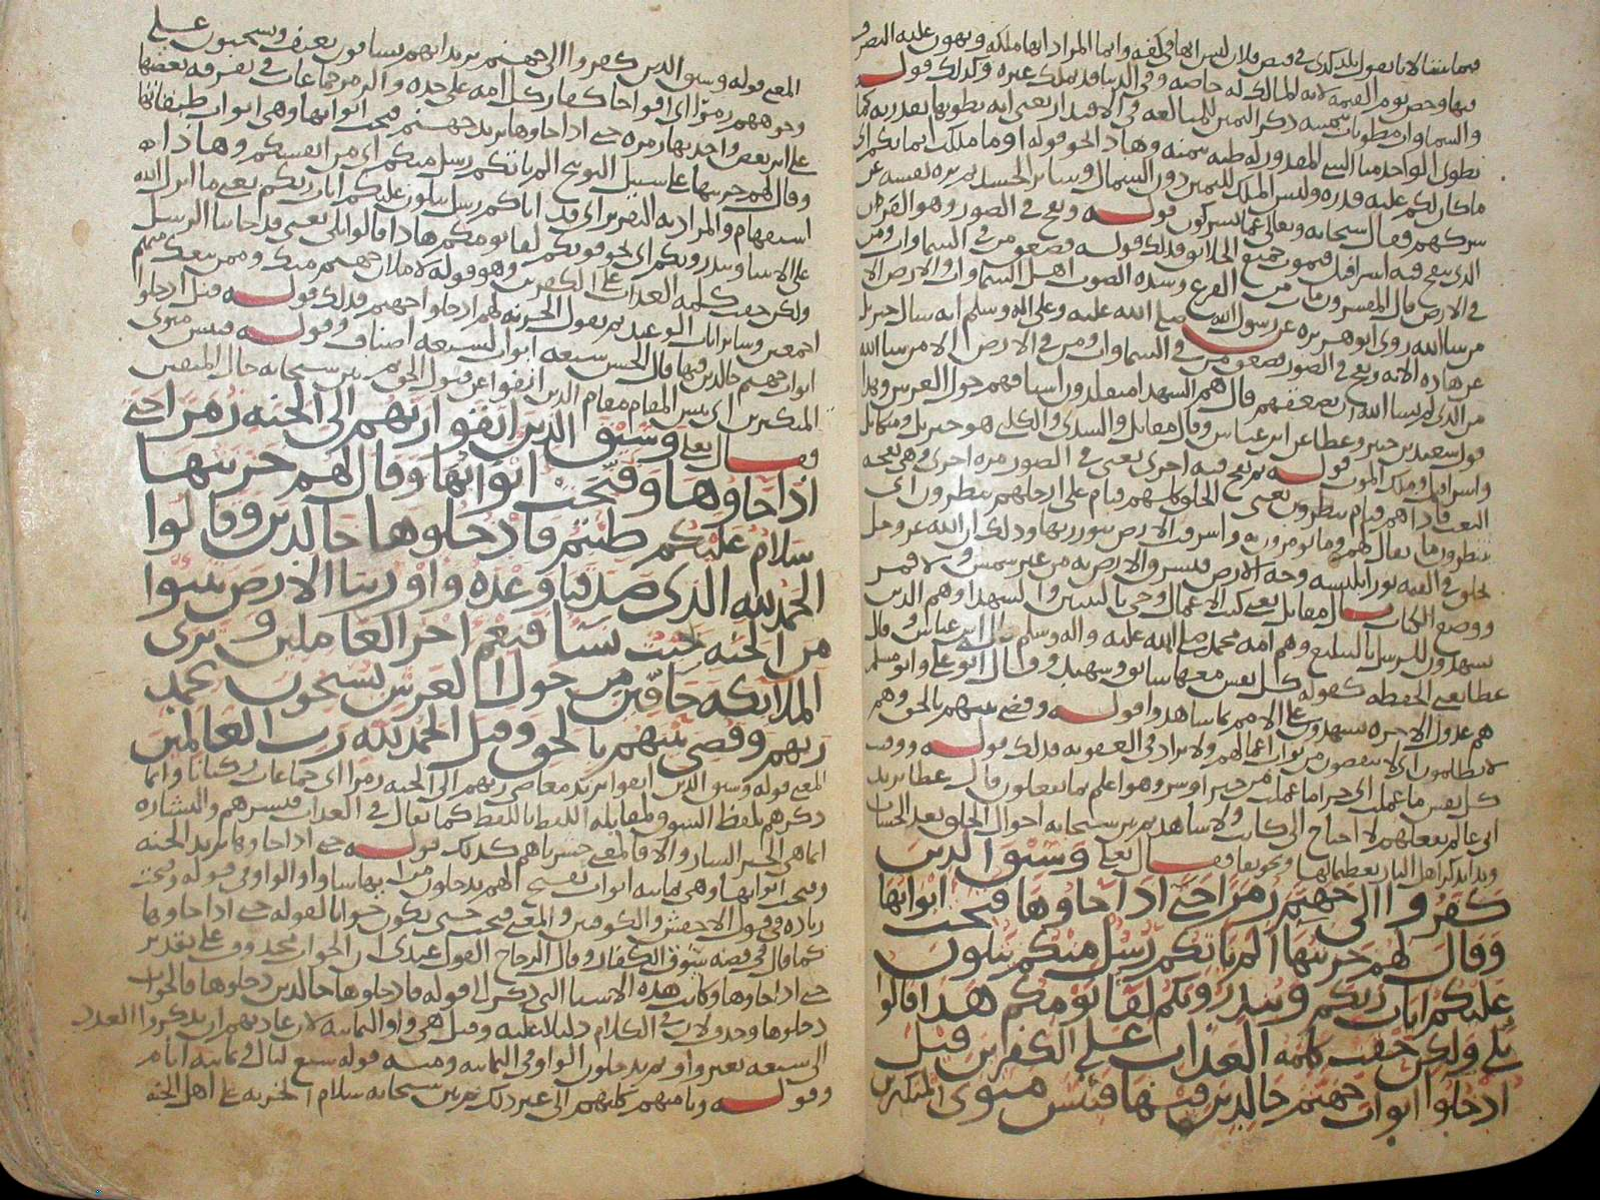 فيها وخص يوم القيمة لانه لا مالك له خاصة وفي الدنيا قد يملك غيره وكذلك قوله
والسماوات مطويات بيمينه ذكر اليمين للمبالغة في الاقتدار يعني انه يطويها بقدرته كما
يطوي الواحد منا الشي المقدور له طيه بيمينه وهذا نحو قوله او ما ملكت ايمانكم اي
ما كان لكم عليه قدرة وليس الملك لليمين دون الشمال وسائر الجسد ثم نزه نفسه عن
شركهم فقال سبحانه وتعالى عما يشركون قوله ونفخ في الصور وهو القرن
الذي ينفخ فيه اسرافيل فيموت جميع الخلائق فذلك قوله فصعق من في السماوات ومن
في الارض قال المفسرون مات من الفزع وشدة الصوت اهل السماوات والارض الا
من شا الله روى ابو هريرة عن رسول الله صلى الله عليه وعلى اله وسلم انه سال جبريل
عن هذه الاية ونفخ في الصور فصعق من في السماوات ومن في الارض الا من شا الله
من الذي لم يشا الله ان يصعقهم قال هم الشهدا متقلدون اسيافهم حول العرش وهذا
قول سعيد بن جبير وعطا عن ابن عباس وقال مقاتل والسدي والكلبي هو جبريل وميكايل
واسرافيل وملك الموت قوله ثم نفخ فيه اخرى يعني في الصور مرة اخرى وهي نفخة
البعث فاذا هم قيام ينظرون يعني الخلق كلهم قيام على ارجلهم ينظرون اي
ينتظرون ما يقال لهم وما يومرون به واشرقت الارض بنور ربها وذلك ان الله عز وجل
يخلق في القيمة نورا يلبسه وجه الارض فتشرق الارض به من غير شمس ولا قمر
ووضع الكتاب قال مقاتل يعني كتب الاعمال وجي بالنبيين والشهدا وهم الذين
يشهدون للرسل بالتبليغ وهم امة محمد صلى الله عليه واله وسلم قال ابن عباس وقال
عطا يعني الحفظة كقوله كل نفس معها سائق وشهيد وقال ابو علي وابو مسلم
هم عدول الاخرة يشهدون على الامم بما شاهدوا قوله وقضي بينهم بالحق وهم
لا يظلمون اي لا ينقصون من ثواب اعمالهم ولا يزاد في العقوبة فذلك قوله ووفيت
كل نفس ما عملت اي جزا ما عملت من خير او شر وهو اعلم بما يفعلون قال عطا يريد
اني عالم بفعلهم لا احتاج الى كاتب ولا شاهد ثم بين سبحانه احوال الخلق بعد الحساب
وبدا بذكر اهل النار تعظيما لها وتخويفا فقال تعالى وسيق الذين
كفروا الى جهنم زمرا حتى اذا جاوها فتحت ابوابها
وقال لهم خزنتها الم ياتكم رسل منكم يتلون
عليكم ايات ربكم وينذرونكم لقا يومكم هذا قالوا
بلى ولكن حقت كلمة العذاب على الكفرين قيل
ادخلوا ابواب جهنم خالدين فيها فبئس مثوى المتكبرين
المعنى قوله وسيق الذين كفروا الى جهنم يريد انهم يساقون بعنف ويسحبون على
وجوههم زمرا اي افواجا كفار كل امة على حدة والزمر جماعات في تفرقة بعضها
على اثر بعض واحدتها زمرة حتى اذا جاوها يريد جهنم فتحت ابوابها وهي ابواب طبقاتها
وقال لهم خزنتها على سبيل التوبيخ الم ياتكم رسل منكم اي من انفسكم وهذا
استفهام والمراد به التقرير اي قد اتاكم رسل يتلون عليكم ايات ربكم يعني ما انزل الله
على الانبيا وينذرونكم اي يخوفونكم لقا يومكم هذا قالوا بلى يعني قد جاتنا الرسل
ولكن حقت كلمة العذاب على الكفرين وهو قوله لاملان جهنم منك وممن تبعك منهم
اجمعين وسائر ايات الوعيد ثم يقول الخزنة لهم ادخلوا جهنم فذلك قوله قيل ادخلوا
ابواب جهنم خالدين فيها قال الحسن سبعة ابواب لسبعة اصناف وقوله فبئس مثوى
المتكبرين اي بئس المقام مقام الذين انفوا عن قبول الحق ثم بين سبحانه حال المتقين
فقال تعالى وسيق الذين اتقوا ربهم الى الجنة زمرا حتى
اذا جاوها وفتحت ابوابها وقال لهم خزنتها
سلام عليكم طبتم فادخلوها خالدين وقالوا
الحمد لله الذي صدقنا وعده واورثنا الارض نتبوا
من الجنة حيث نشا فنعم اجر العاملين وترى
الملائكة حافين من حول العرش يسبحون بحمد
ربهم وقضي بينهم بالحق وقيل الحمد لله رب العالمين
المعنى قوله وسيق الذين اتقوا يريد معاصي ربهم الى الجنة زمرا اي جماعات ركبانا وانما
ذكرهم بلفظ السوق لمقابلة اللفظ باللفظ كما يقال في العذاب فبشرهم والبشارة
انما هي الخبر السار والا فالمعنى حشرناهم كذلك قوله حتى اذا جاوها يريد الجنة
وفتحت ابوابها وهي ثمانية ابواب تفتح لهم يدخلون من ايها شاوا والواو في قوله وفتحت
زيادة في قول الاخفش والكوفيين والمعنى فتحت حتى يكون جوابا لقوله حتى اذا جاوها
كما قال في قصة سوق الكفار وقال الزجاج القول عندي ان الجواب محذوف على تقدير
حتى اذا جاوها وكانت هذه الاشيا التي ذكر الى قوله فادخلوها خالدين دخلوها فالجواب
دخلوها وحذف لان في الكلام دليلا عليه وقيل هي واو الثمانية لان عادتهم ان يذكروا العدد
الى سبعة بغير واو ثم يدخلون الواو في الثمانية ومنه قوله سبع ليال وثمانية ايام
وقوله وثامنهم كلبهم الى غير ذلك ثم بين سبحانه سلام الخزنة على اهل الجنة